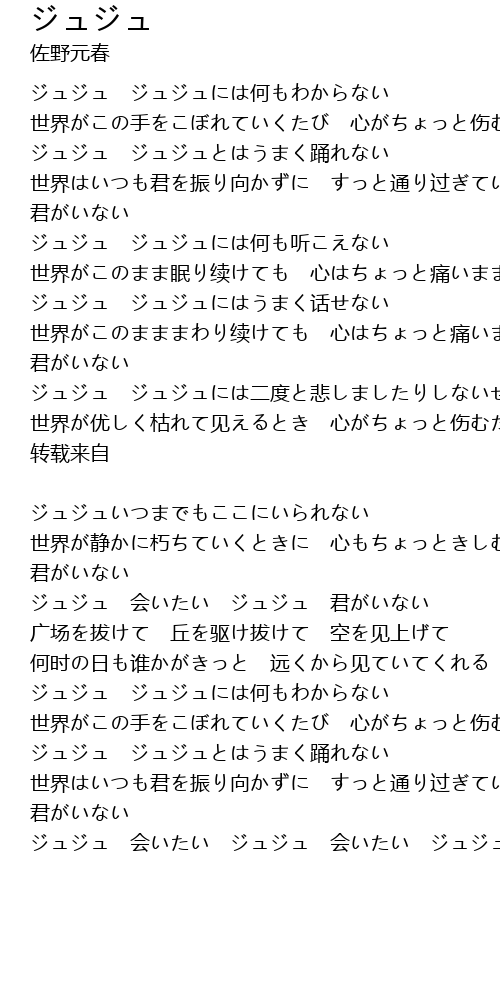 ジュジュ
佐野元春
ジュジュ　ジュジュには何もわからない
世界がこの手をこぼれていくたび　心がちょっと伤む
ジュジュ　ジュジュとはうまく踊れない
世界はいつも君を振り向かずに　すっと通り过ぎてい
君がいない
ジュジュ　ジュジュには何も听こえない
世界がこのまま眠り续けても　心はちょっと痛いまま
ジュジュ　ジュジュにはうまく话せない
世界がこのまままわり续けても　心はちょっと痛いま
君がいない
ジュジュ　ジュジュには二度と悲しましたりしないぜ
世界が优しく枯れて见えるとき　心がちょっと伤むた
转载来自
ジュジュいつまでもここにいられない
世界が静かに朽ちていくときに　心もちょっときしむ
君がいない
ジュジュ　会いたい　ジュジュ　君がいない
广场を抜けて　丘を驱け抜けて　空を见上げて
何时の日も谁かがきっと　远くから见ていてくれる
ジュジュ　ジュジュには何もわからない
世界がこの手をこぼれていくたび　心がちょっと伤む
ジュジュ　ジュジュとはうまく踊れない
世界はいつも君を振り向かずに　すっと通り过ぎてい
君がいない
ジュジュ　会いたい　ジュジュ　会いたい　ジュジュ